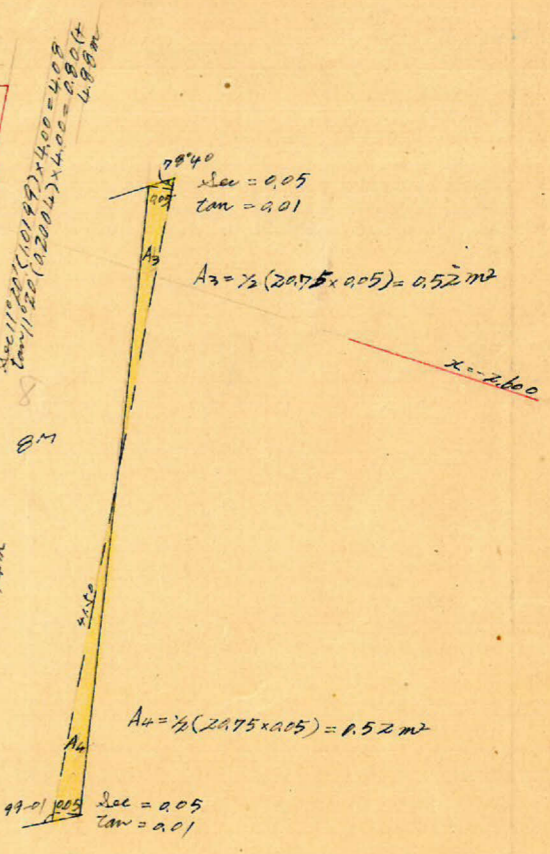 Sec 11°20' (1.0199) x 4.00 = 4.08
tan 11°20' (0.2004) x 4.00 = 0.80 (+
4.88 m
78°40
Sec = 0.05
tan = 0.01
0.05
A3
A3 = ½ (20.75 x 0.05) = 0.52 m²
x = -2.600
8 M
41.50
A4 = ½ (20.75 x 0.05) = 0.52 m²
A4
99-01
0.05
Sec = 0.05
tan = 0.01